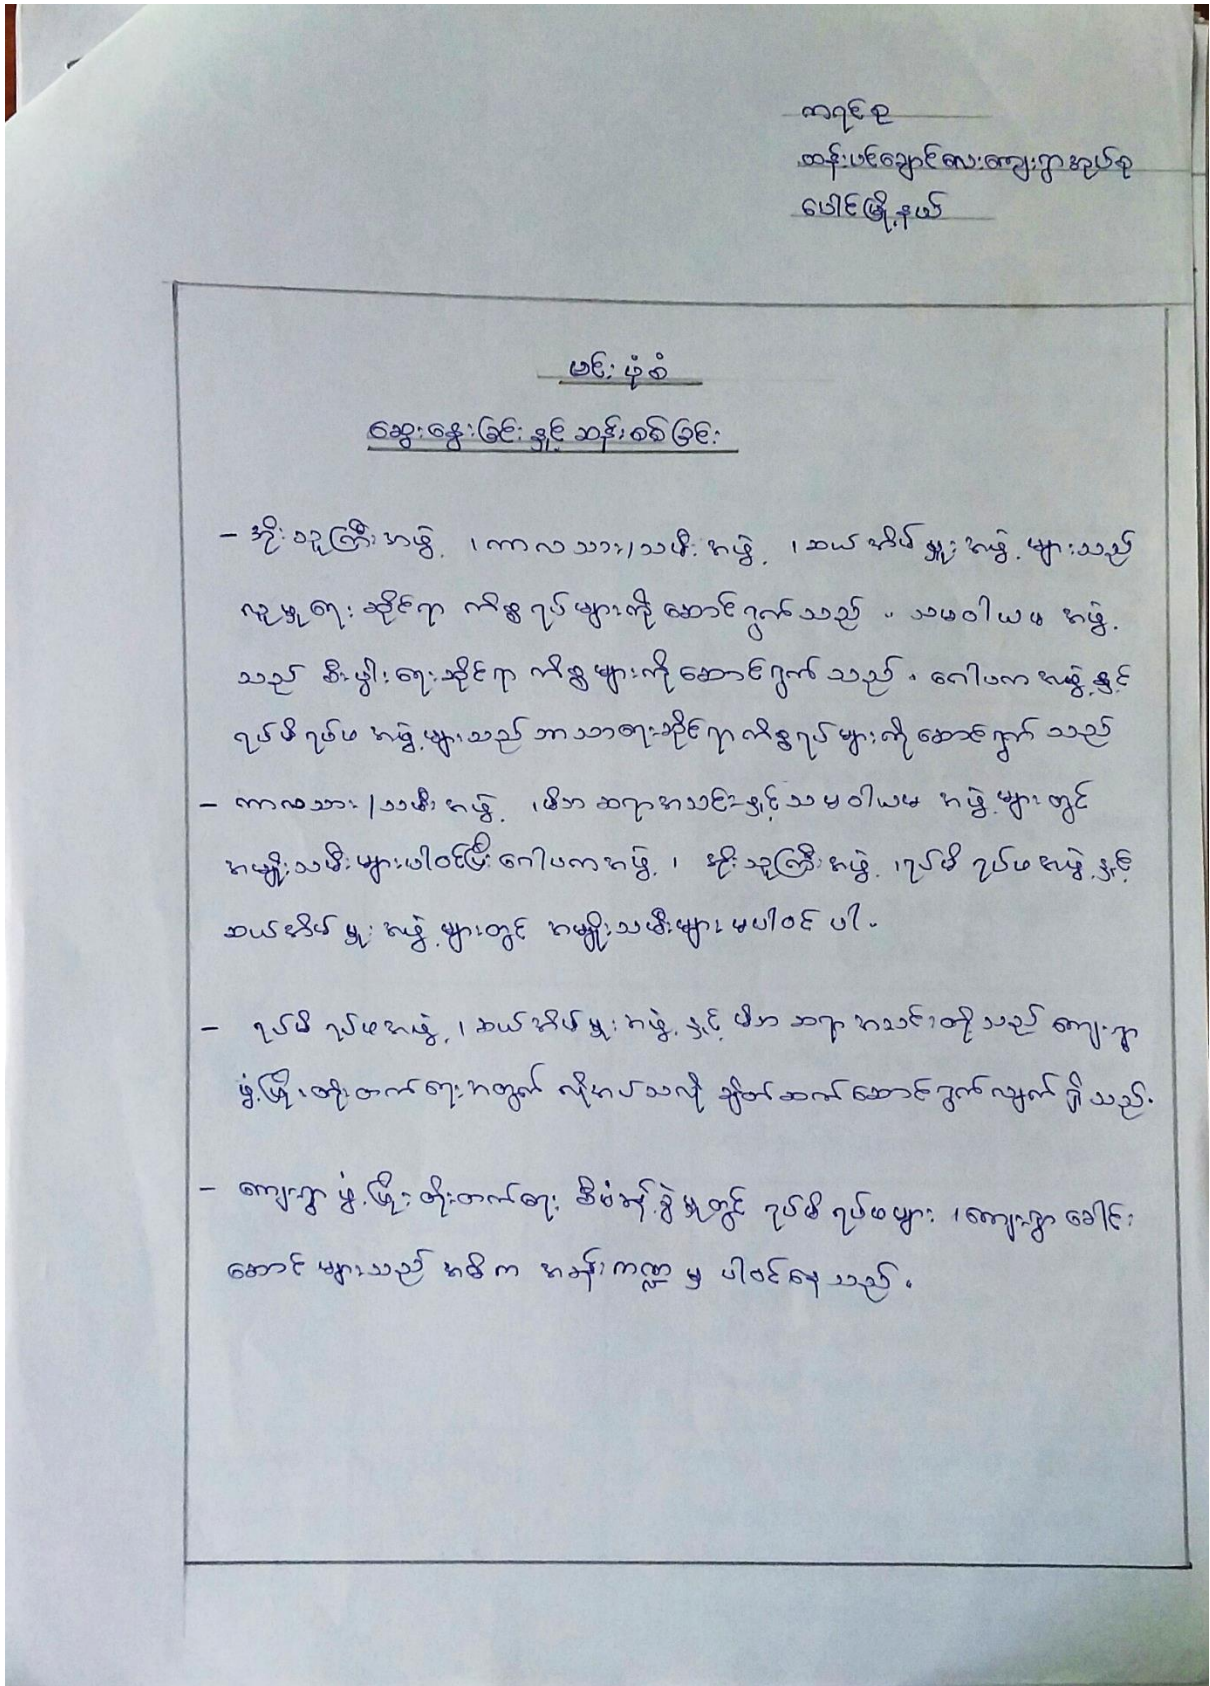 ကရင်စု
ထန်းပင်ချောင်လေးကျေးရွာအုပ်စု
ပေါင်မြို့နယ်
ဗင်းပုံစံ
ဆွေးနွေးခြင်းနှင့်ဆန်းစစ်ခြင်း
- အိုးသူကြီးအဖွဲ့ ၊ ကာလသား/သမီးအဖွဲ့ ၊ ဆယ်အိမ်မှူးအဖွဲ့များသည်
လူမှုရေးဆိုင်ရာ ကိစ္စရပ်များကိုဆောင်ရွက်သည် ။ သမဝါယမ အဖွဲ့
သည် စီးပွါးရေးဆိုင်ရာ ကိစ္စများကိုဆောင်ရွက်သည် ။ ဂေါပကအဖွဲ့နှင့်
ရပ်မိရပ်ဖအဖွဲ့များသည်ဘာသာရေးဆိုင်ရာကိစ္စရပ်များကိုဆောင်ရွက်သည်
- ကာလသား/သမီးအဖွဲ့ ၊ မိဘဆရာအသင်းနှင့်သမဝါယမ အဖွဲ့များတွင်
အမျိုးသမီးများပါဝင်ပြီးဂေါပကအဖွဲ့ ၊ အိုးသူကြီးအဖွဲ့ ၊ ရပ်မိရပ်ဖအဖွဲ့နှင့်
ဆယ်အိမ်မှူးအဖွဲ့များတွင် အမျိုးသမီးများမပါဝင်ပါ ။
- ရပ်မိရပ်ဖအဖွဲ့ ၊ ဆယ်အိမ်မှူးအဖွဲ့နှင့် မိဘဆရာအသင်းတို့သည် ကျေးရွာ
ဖွံ့ဖြိုးတိုးတက်ရေးအတွက် လိုအပ်သလို ချိတ်ဆက်ဆောင်ရွက်လျက်ရှိသည် ။
- ကျေးရွာဖွံ့ဖြိုးတိုးတက်ရေး စီမံခန့်ခွဲမှုတွင် ရပ်မိရပ်ဖများ ၊ ကျေးရွာခေါင်း
ဆောင်များသည် အဓိကအခန်းကဏ္ဍမှ ပါဝင်နေသည် ။